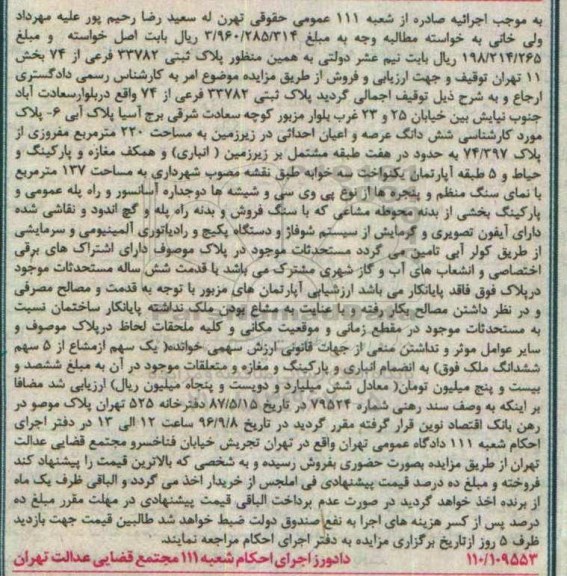 به موجب اجرائیه صادره از شعبه ۱۱۱ عمومی حقوقی تهرن له سعید رضا رحیم پور علیه مهرداد
ولی خانی به خواسته مطالبه وجه به مبلغ ۳/۹۶۰/۲۸۵/۳۱۴ ریال بابت اصل خواسته و مبلغ
۱۹۸/۲۱۴/۲۶۵ ریال بابت نیم عشر دولتی به همین منظور پلاک ثبتی ۳۳۷۸۲ فرعی از ۷۴ بخش
۱۱ تهران توقیف و جهت ارزیابی و فروش از طریق مزایده موضوع امر به کارشناس رسمی دادگستری
ارجاع و به شرح ذیل توقیف اجمالی گردید پلاک ثبتی ۳۳۷۸۲ فرعی از ۷۴ واقع دربلوارسعادت آباد
جنوب نیایش بین خیابان ۲۵ و ۲۳ غرب بلوار مزبور کوچه سعادت شرقی برج آسیا پلاک آبی ۶- پلاک
مورد کارشناسی شش دانگ عرصه و اعیان احداثی در زیرزمین به مساحت ۲۲۰ مترمربع مفروزی از
پلاک ۷۴/۳۹۷ به حدود در هفت طبقه مشتمل بر زیرزمین ( انباری) و همکف مغازه و پارکینگ و
حیاط و ۵ طبقه آپارتمان یکنواخت سه خوابه طبق نقشه مصوب شهرداری به مساحت ۱۳۷ مترمربع
با نمای سنگ منظم و پنجره ها از نوع پی وی سی و شیشه ها دوجداره آسانسور و راه پله عمومی و
پارکینگ بخشی از بدنه محوطه مشاعی که با سنگ فروش و بدنه راه پله و گچ اندود و نقاشی شده
دارای آیفون تصویری و گرمایش از سیستم شوفاژ و دستگاه پکیج و رادیاتوری آلمینیومی و سرمایشی
از طریق کولر آبی تامین می گردد مستحدثات موجود در پلاک موصوف دارای اشتراک های برقی
اختصاصی و انشعاب های آب و گاز شهری مشترک می باشد با قدمت شش ساله مستحدثات موجود
درپلاک فوق فاقد پایانکار می باشد ارزشیابی آپارتمان های مزبور با توجه به قدمت و مصالح مصرفی
و در نظر داشتن مصالح بکار رفته و با عنایت به مشاع بودن ملک نداشته پایانکار ساختمان نسبت
به مستحدثات موجود در مقطع زمانی و موقعیت مکانی و کلیه ملحقات لحاظ درپلاک موصوف و
سایر عوامل موثر و نداشتن منعی از جهات قانونی ارزش سهمی خوانده( یک سهم ازمشاع از ۵ سهم
ششدانگ ملک فوق) به انضمام انباری و پارکینگ و مغازه و متعلقات موجود در آن به مبلغ ششصد و
بیست و پنج میلیون تومان( معادل شش میلیارد و دویست و پنجاه میلیون ریال) ارزیابی شد مضافا
بر اینکه به وصف سند رهنی شماره ۷۹۵۲۴ در تاریخ ۸۷/۵/۱۵ دفترخانه ۵۲۵ تهران پلاک موصو در
رهن بانک اقتصاد نوین قرار گرفته مقرر گردید در تاریخ ۹۶/۹/۸ ساعت ۱۲ الی ۱۳ در دفتر اجرای
احکام شعبه ۱۱۱ دادگاه عمومی تهران واقع در تهران تجریش خیابان فناخسرو مجتمع قضایی عدالت
تهران از طریق مزایده بصورت حضوری بفروش رسیده و به شخصی که بالاترین قیمت را پیشنهاد کند
فروخته و مبلغ ده درصد قیمت پیشنهادی فی املجس از خریدار اخذ می گردد و الباقی ظرف یک ماه
از برنده اخذ خواهد گردید در صورت عدم پرداخت الباقی قیمت پیشنهادی در مهلت مقرر مبلغ ده
درصد پس از کسر هزینه های اجرا به نفع صندوق دولت ضبط خواهد شد طالبین قیمت جهت بازدید
ظرف ۵ روز ازتاریخ برگزاری مزایده به دفتر اجرای احکام مراجعه نمایند.
۱۱۰/۱۰۹۵۵۳ دادورز اجرای احکام شعبه ۱۱۱ مجتمع قضایی عدالت تهران